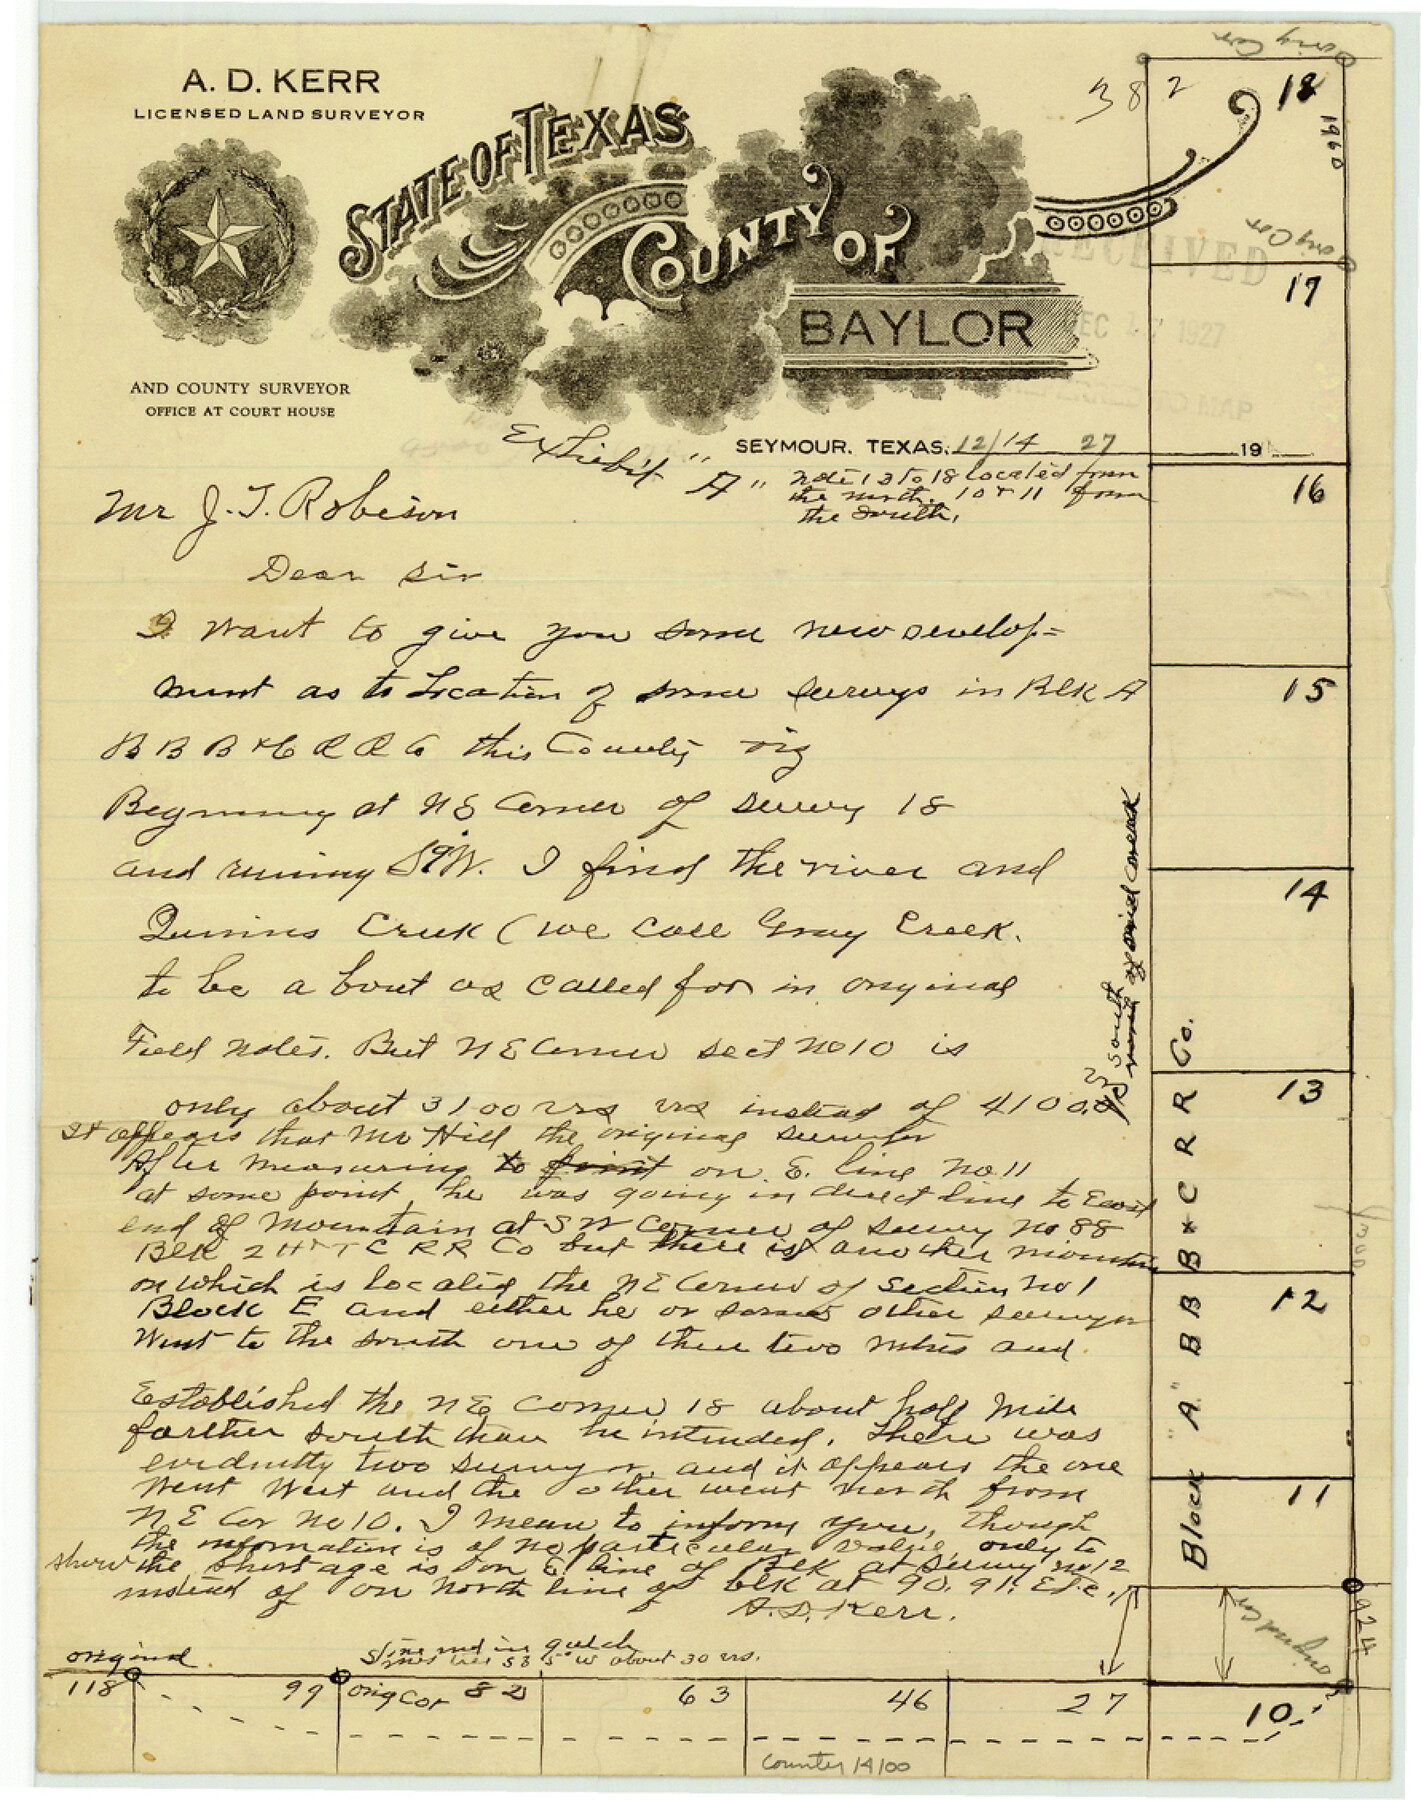 A. D. KERR
LICENSED LAND SURVEYOR
STATE OF TEXAS
COUNTY OF
BAYLOR
AND COUNTY SURVEYOR
OFFICE AT COURT HOUSE
RECEIVED
DEC 17 1927
MAP
SEYMOUR, TEXAS, 12/14 27 19
Exhibit "A"
Note 13 to 18 located from
the north. 10 & 11 from
the south.
Mr J. T. Robison
Dear Sir
I want to give you some new develop=
ment as to Location of some surveys in Blk A
B B B & C R R Co this County viz
Begnning at NE Corner of survey 18
and runing S 9° W. I find the river and
Quinns Creek (we call Gray Creek.
to be a bout as called for in original
Field notes. But NE Corner sect No 10 is
only about 3100 vrs vrs instead of 4100.
It appears that Mr Hill the original surveyor
After measuring to point on E. line No. 11
at some point he was going in direct line to East
end of Mountain at SW Corner of survey No 88
Blk 2 H & T C RR Co but there is another mountain
on which is located the NE Corner of Section No 1
Block E and either he or some other surveyor
Went to the south one of these two mtns and
Established the NE Corner 18 about half mile
farther south than he intended. There was
evidently two surveyors and it appears the one
went West and the other went north from
NE Cor No 10. I mean to inform you, though
the information is of no particular value, only to
show the shortage is on E. line of Blk at survey no 12
instead of on north line of blk at 90. 91. Etc.
A. D. Kerr.
382
18
1960
orig Cor
orig Cor
17
16
15
14
13
12
11
10
south of original
Block "A" B B B & C R R Co.
924
original Cor
original
Stone md in gulch
118
99
orig Cor 82
63
46
27
counter 14100